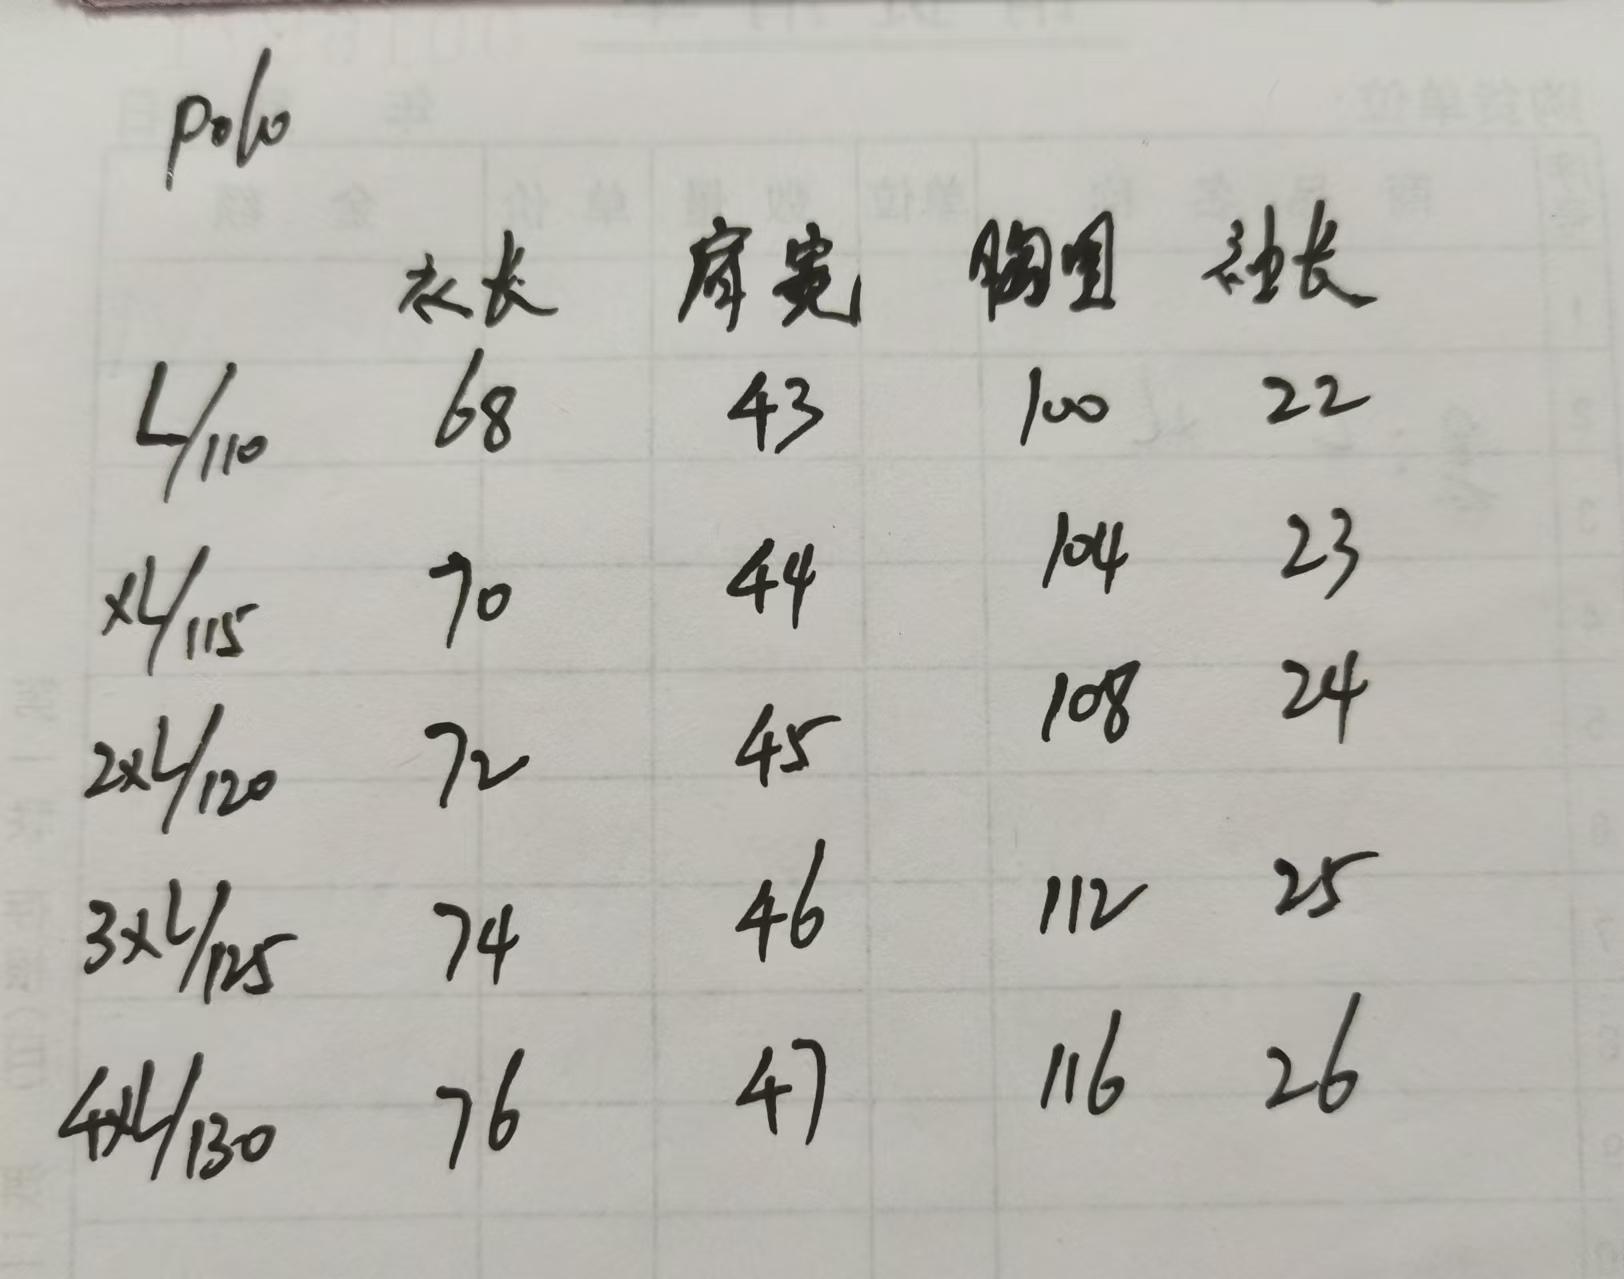 polo
衣长 肩宽 胸围 袖长
L/110 68 43 100 22
XL/115 70 44 104 23
2XL/120 72 45 108 24
3XL/125 74 46 112 25
4XL/130 76 47 116 26